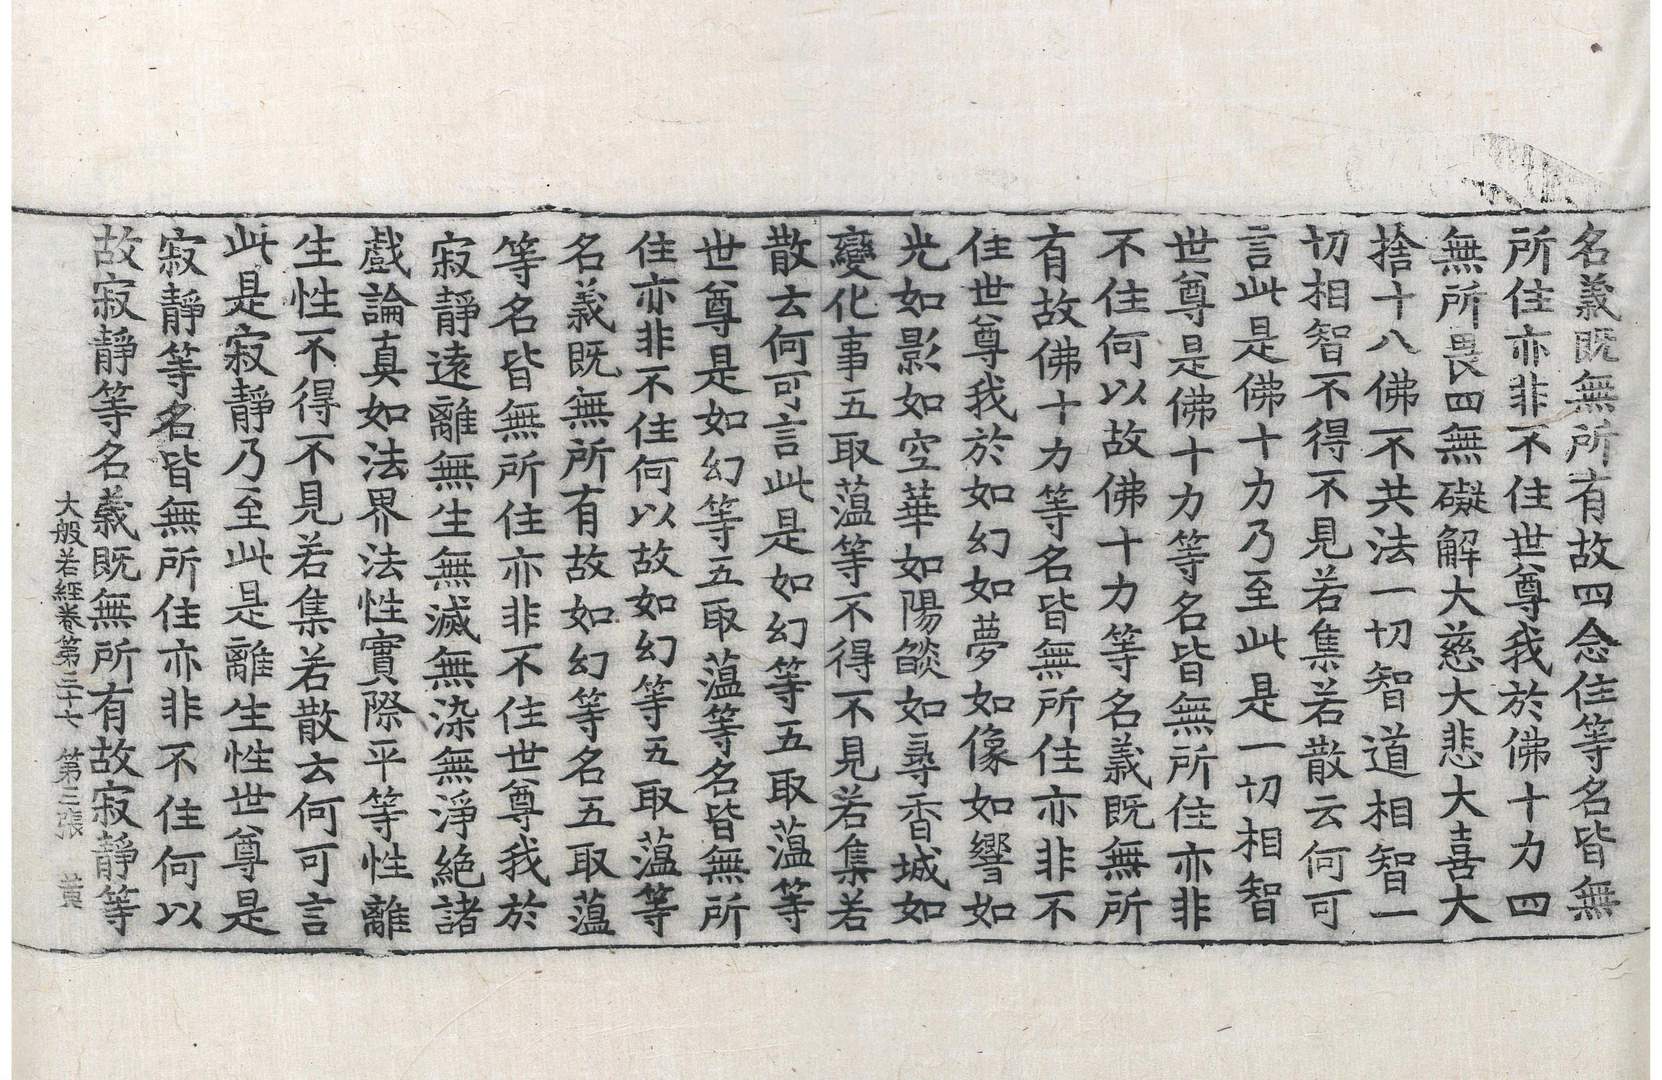 名義既無所有故四念住等名皆無
所住亦非不住世尊我於佛十力四
無所畏四無礙解大慈大悲大喜大
捨十八佛不共法一切智道相智一
切相智不得不見若集若散云何可
言此是佛十力乃至此是一切相智
世尊是佛十力等名皆無所住亦非
不住何以故佛十力等名義既無所
有故佛十力等名皆無所住亦非不
住世尊我於如幻如夢如像如響如
光如影如空華如陽燄如尋香城如
變化事五取蘊等不得不見若集若
散云何可言此是如幻等五取蘊等
世尊是如幻等五取蘊等名皆無所
住亦非不住何以故如幻等五取蘊等
名義既無所有故如幻等名五取蘊
等名皆無所住亦非不住世尊我於
寂靜遠離無生無滅無染無淨絕諸
戲論真如法界法性實際平等性離
生性不得不見若集若散云何可言
此是寂靜乃至此是離生性世尊是
寂靜等名皆無所住亦非不住何以
故寂靜等名義既無所有故寂靜等
大般若經卷第三十七 第三張 黃